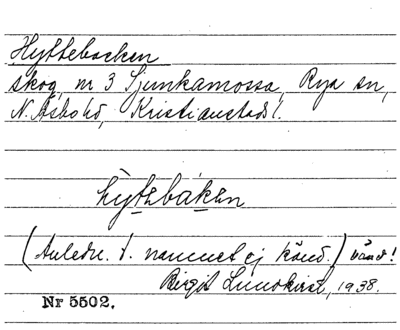 Hyttebacken
skog, nr 3 Ljunkamossa, Rya sn,
N. Åsbo hd, Kristianstads l.
hytebakən
(Anledn. t. namnet ej känd.)
Birgit Lundkvist, 1938.
Nr 5502.